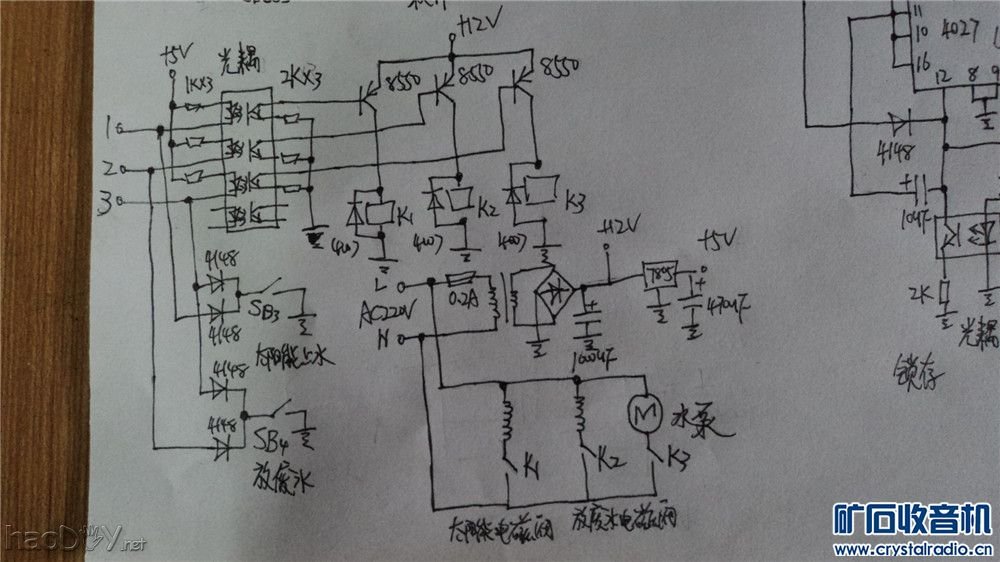 +12V
+5V
光耦
1K×3
2K×3
8550
8550
8550
1
2
3
K1
K2
K3
4007
4007
4007
4148
4148
SB3
太阳能上水
4148
4148
SB4
放废水
L
AC220V
N
0.2A
+12V
7805
+5V
1000uF
470uF
M
水泵
K1
K2
K3
太阳能电磁阀
放废水电磁阀
11
10
16
4027
12
8
9
4148
+
10uF
2K
光耦
锁存
haoDIY.net
矿石收音机
www.crystalradio.cn